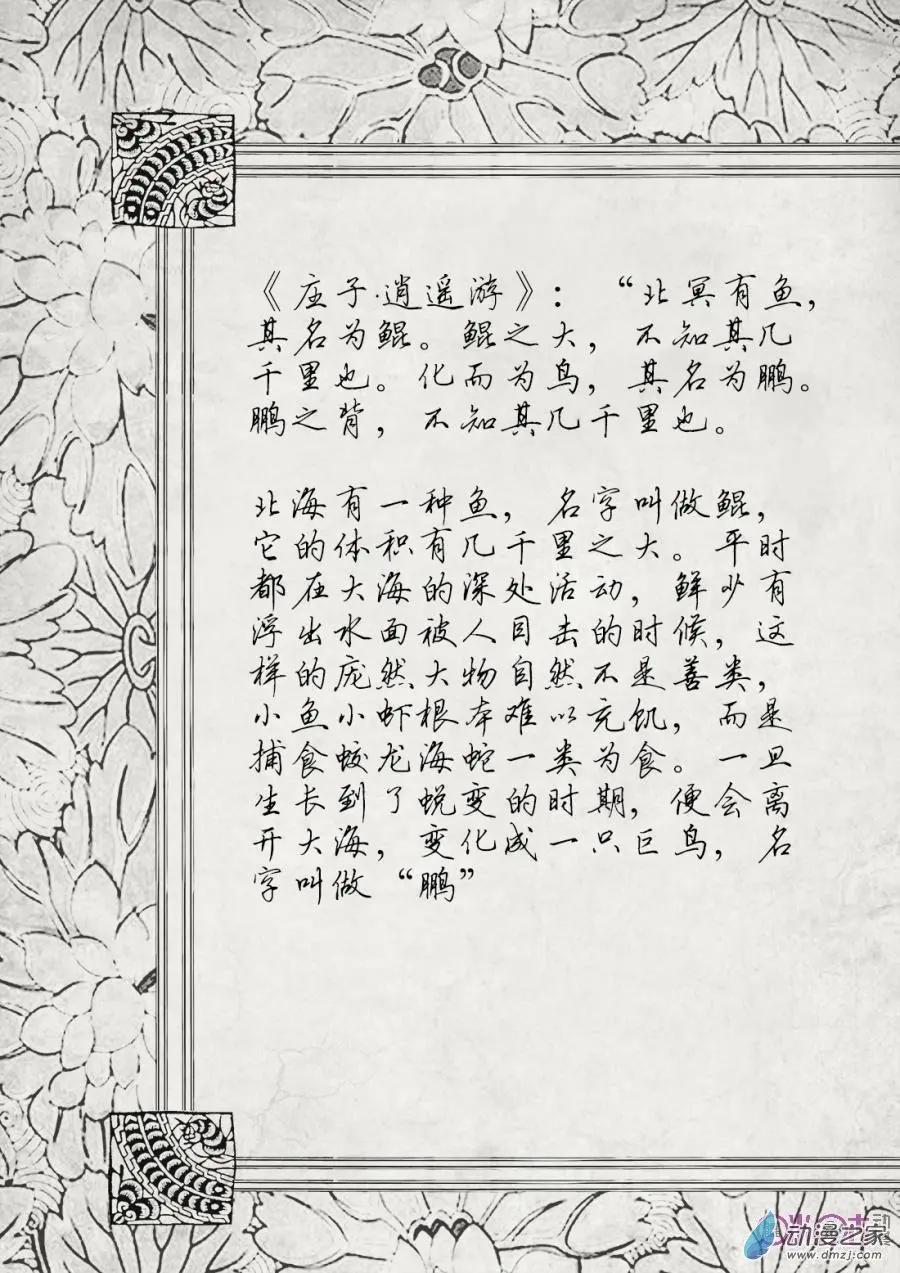 《庄子·逍遥游》：“北冥有鱼，
其名为鲲。鲲之大，不知其几
千里也。化而为鸟，其名为鹏。
鹏之背，不知其几千里也。
北海有一种鱼，名字叫做鲲，
它的体积有几千里之大。平时
都在大海的深处活动，鲜少有
浮出水面被人目击的时候，这
样的庞然大物自然不是善类，
小鱼小虾根本难以充饥，而是
捕食蛟龙海蛇一类为食。一旦
生长到了蜕变的时期，便会离
开大海，变化成一只巨鸟，名
字叫做“鹏”
动漫之家
www.dmzj.com